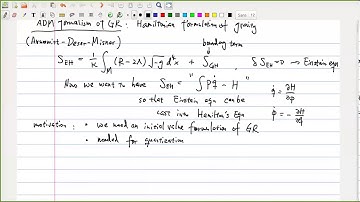 ADM formalism of GR : Hamiltonian formulation of gravity
(Arnowitt-Deser-Misner)
boundary term
S_EH = 1/K ∫_M (R - 2Λ) √-g d⁴x + S_GH , δ S_EH = 0 → Einstein eqn
Now we want to have S_EH = " ∫ p q̇ - H "
so that Einstein eqn can be
cast into Hamilton's Eqn
q̇ = ∂H/∂p
ṗ = - ∂H/∂q
motivation : • we need an initial value formulation of GR
• needed for quantization